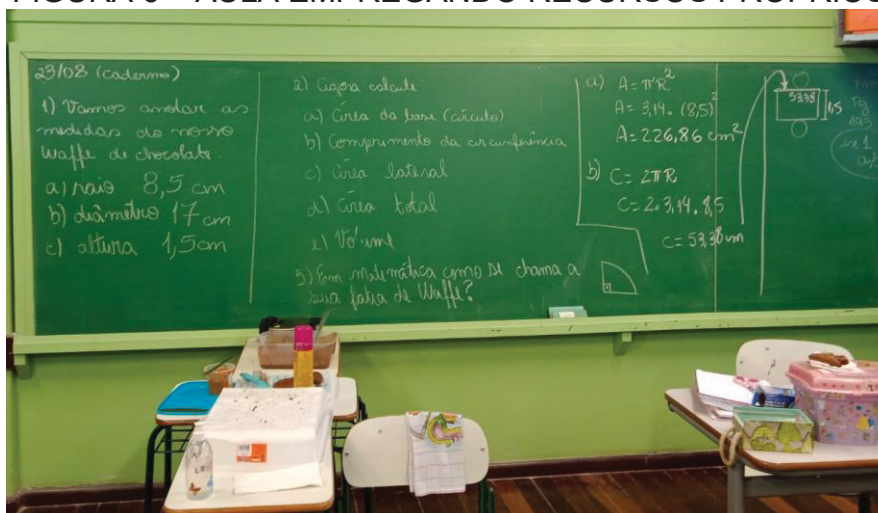 FIGURA 6 – AULA EMPREGANDO RECURSOS PRÓPRIOS
23/08 (caderno)
1) Vamos anotar as
medidas do nosso
Waffe de chocolate
a) raio 8,5 cm
b) diâmetro 17 cm
c) altura 1,5cm
2) Agora calcule:
a) Área da base (círculo)
b) Comprimento da circunferência
c) Área lateral
d) Área total
e) Volume
3) Em matemática como se chama a
sua fatia de Waffe?
a) A = πR²
A = 3,14. (8,5)²
A = 226,86 cm²
b) C = 2πR
C = 2.3,14.8,5
C = 53,38 cm
53,38
1,5
Pg
ex 1